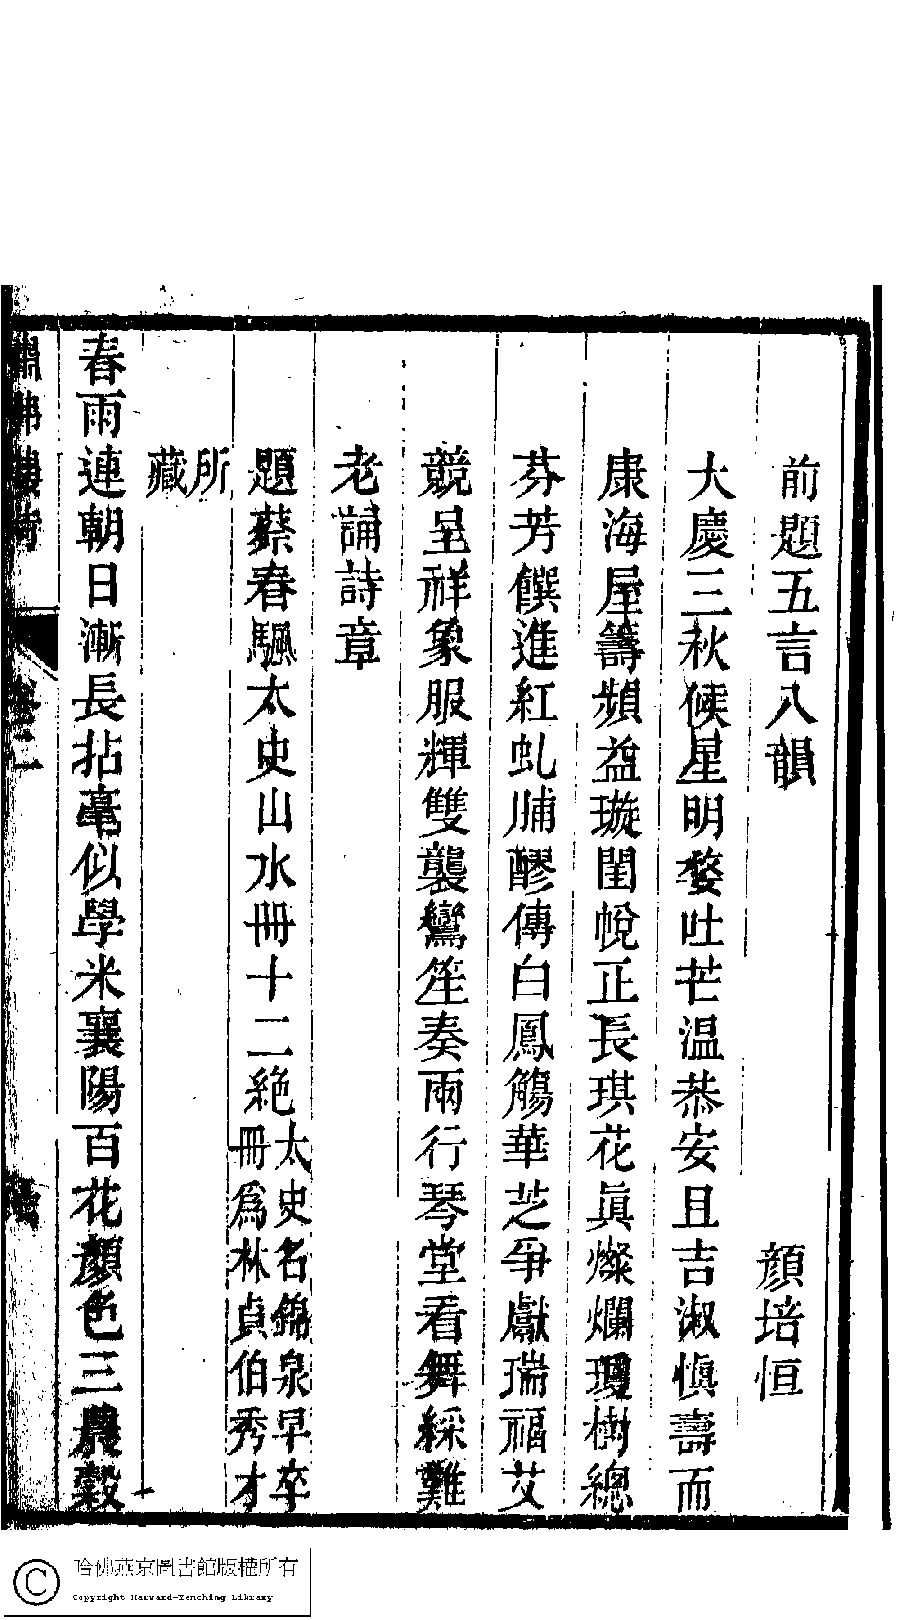 前題五言八韻　顏培恒
大慶三秋候星明婺吐芒溫恭安且吉淑愼壽而
康海屋籌頻益璇閨帨正長琪花眞燦爛瓊樹總
芬芳饌進紅虬脯醪傳白鳳觴華芝爭獻瑞福艾
競呈祥象服輝雙襲鸞笙奏兩行琴堂看舞綵難
老誦詩章
題蔡春颿太史山水冊十二絶太史名錦泉早卒
冊爲林貞伯秀才
所
藏
春雨連朝日漸長拈毫似學米襄陽百花顏色三農穀
卷二
哈佛燕京圖書館版權所有
Copyright Harvard-Yenching Library